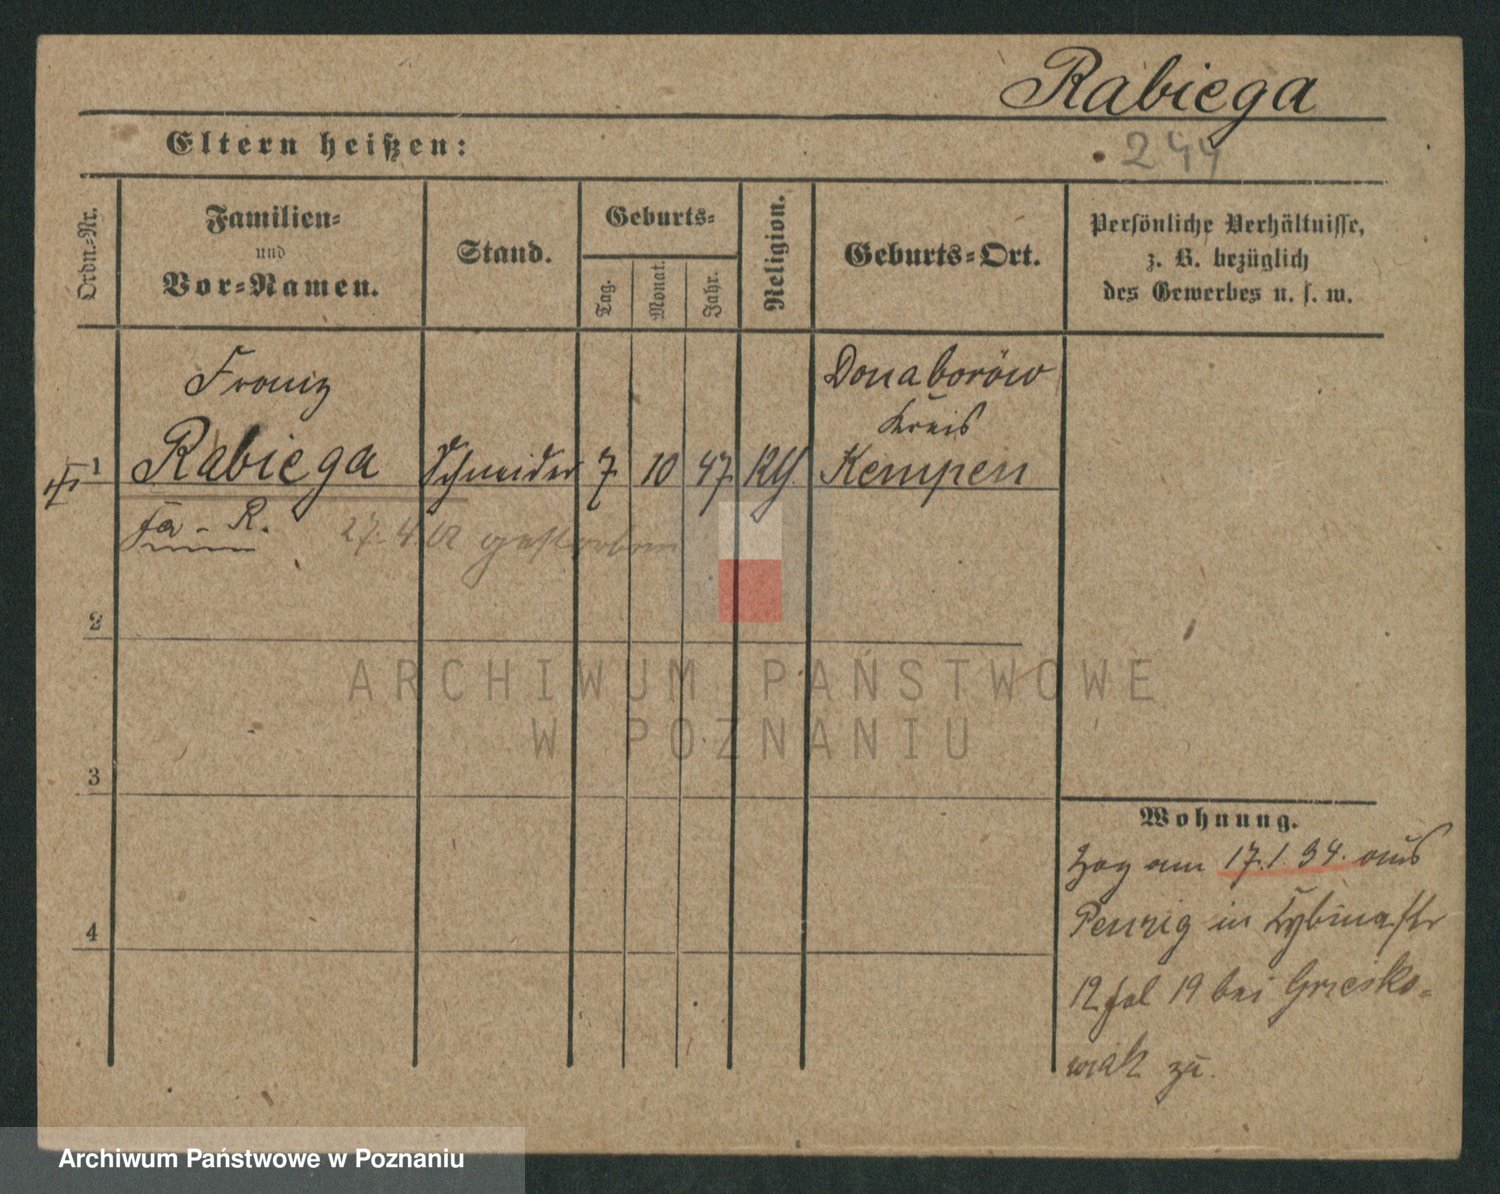 Rabiega
244
Eltern heißen:
Ordn.=Nr.
Familien=
und
Vor=Namen.
Stand.
Geburts=
Tag.
Monat.
Jahr.
Religion.
Geburts=Ort.
Persönliche Verhältnisse,
z. B. bezüglich
des Gewerbes u. s. w.
Franz
Donaborów
Kreis
1 Rabiega Schneider 7. 10 47. Kempen
27. 4. 12 gestorben
2
ARCHIWUM PAŃSTWOWE
W POZNANIU
3
Wohnung.
Zog am 17.1 94. aus
4
in
12 fol 19 bei Grzesko=
wiak zu.
Archiwum Państwowe w Poznaniu